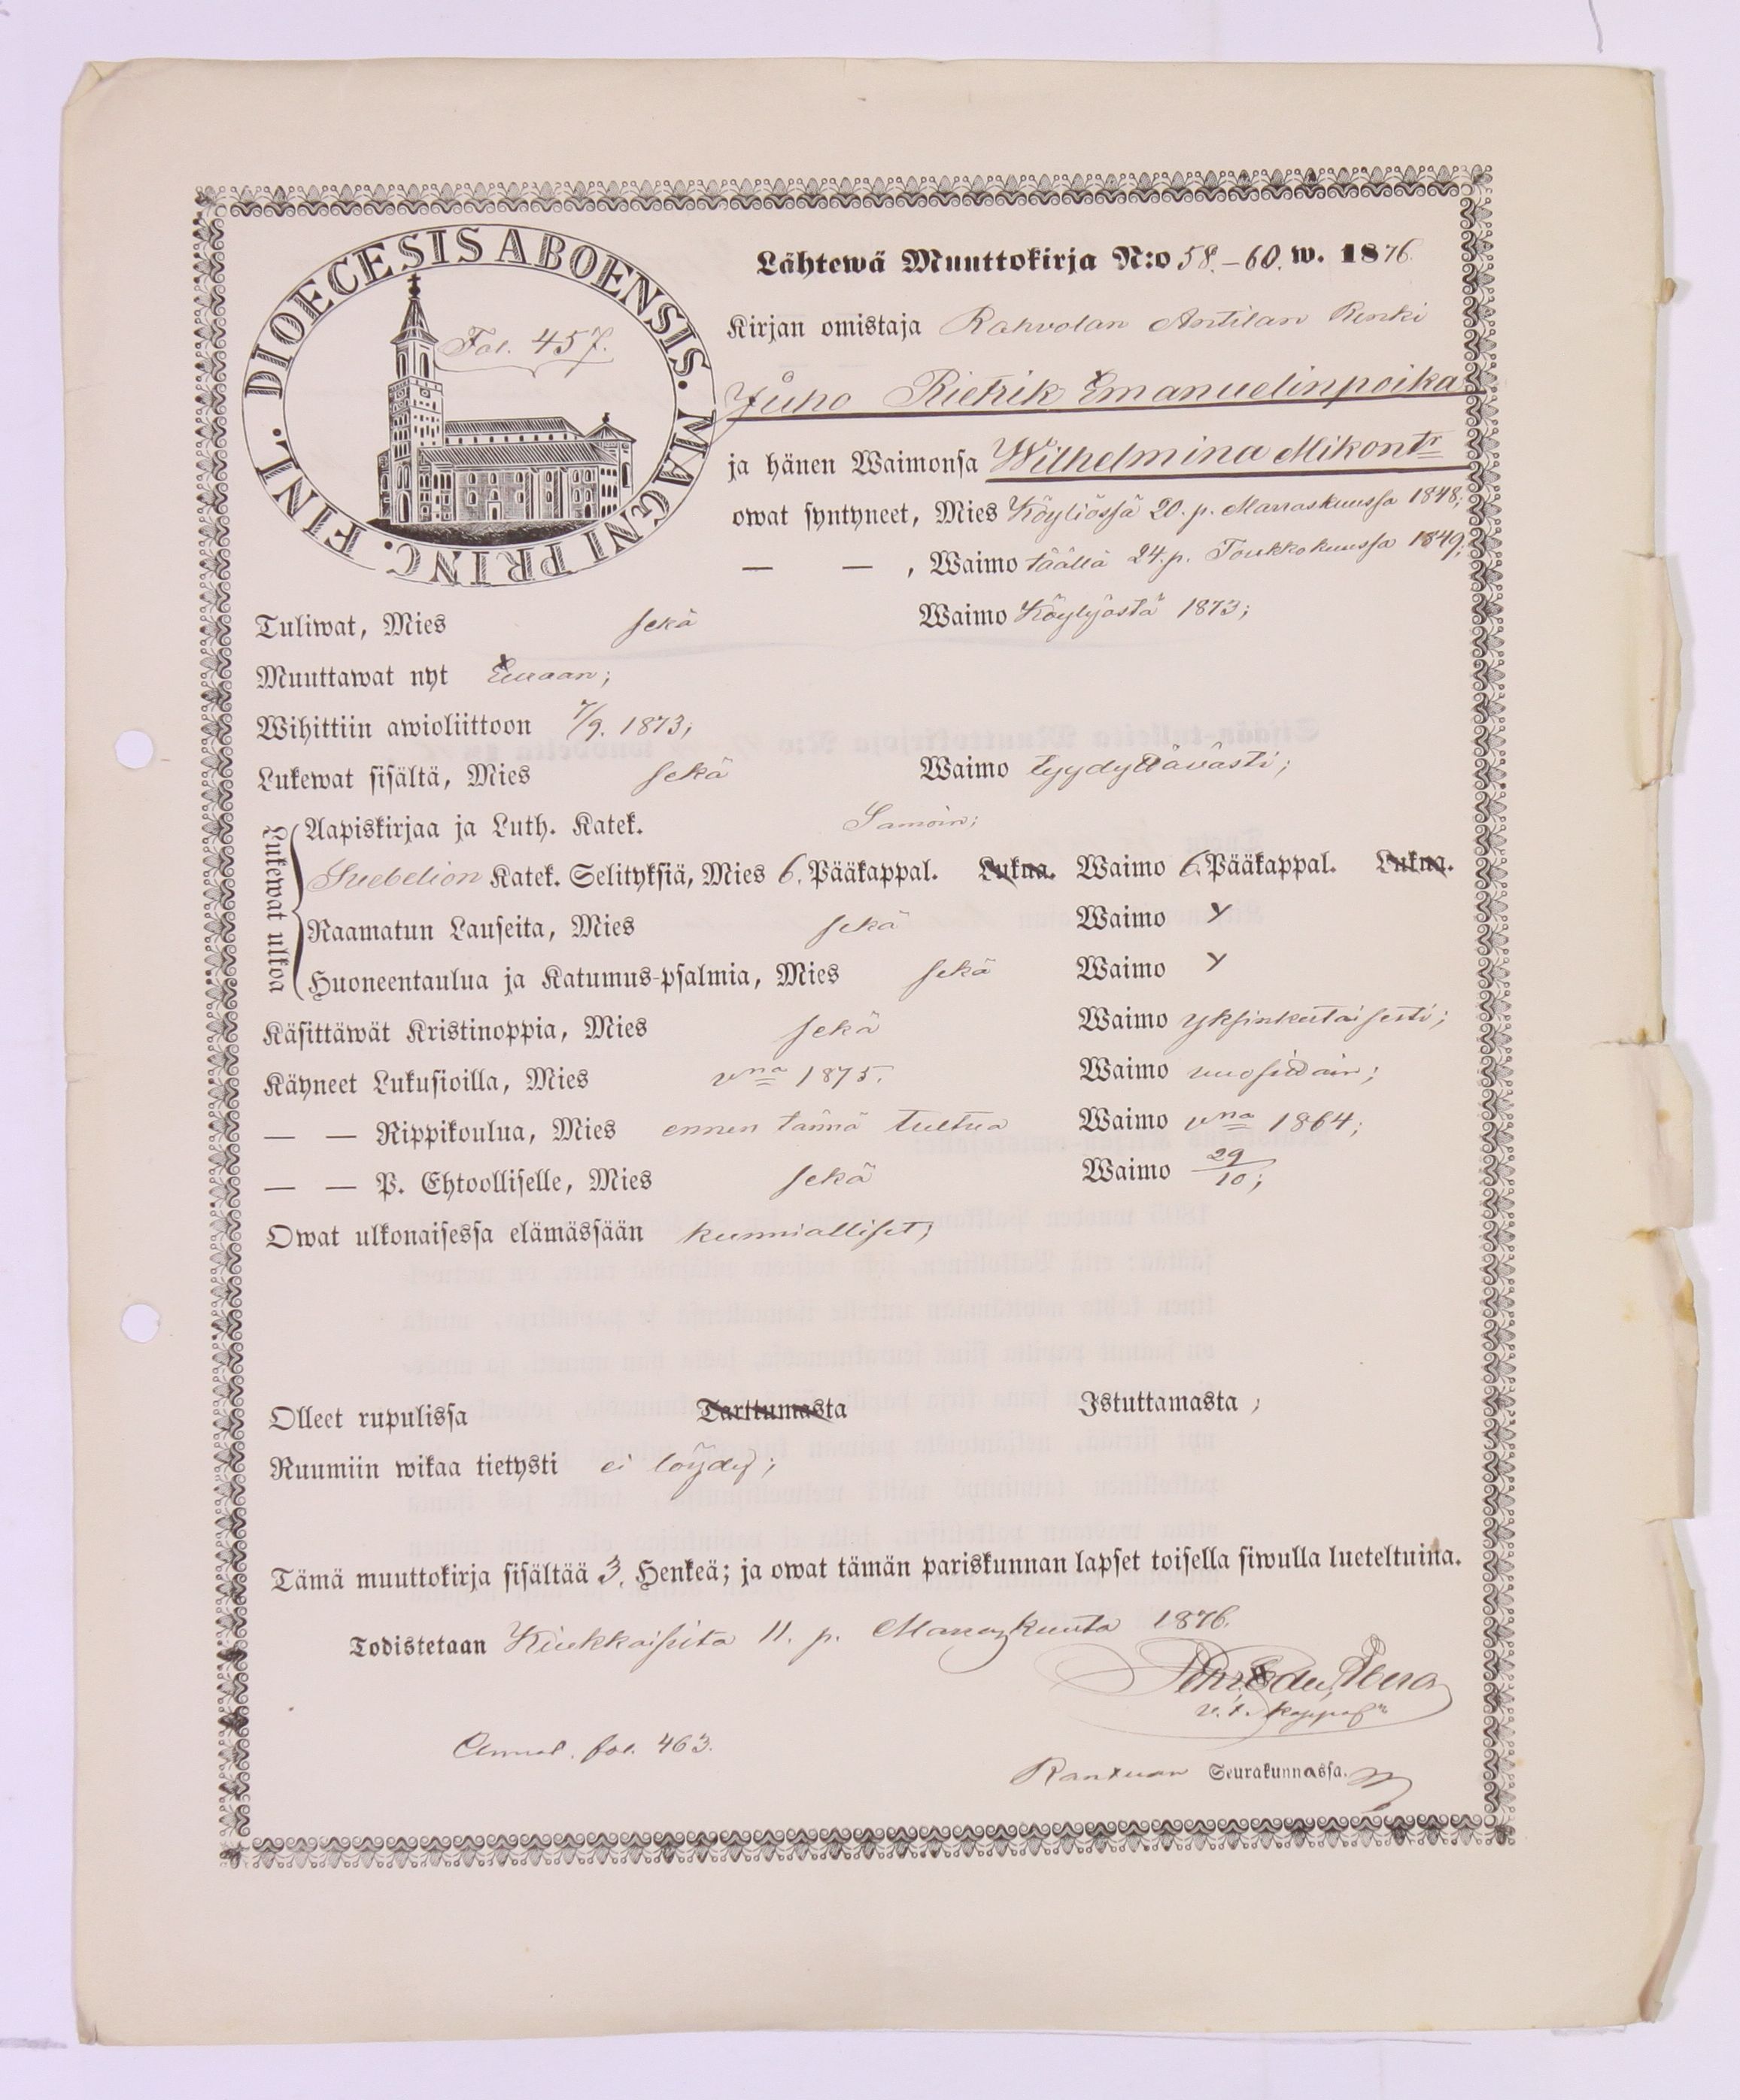 DIOECESIS ABOENSIS. MAGNI PRINC. FINL.
Fol. 457.
Lähtewä Muuttokirja N:o 58.–60. w. 1876.
Kirjan omistaja Rahvolan Antilan Renki
Juho Rietrik Emanuelinpoika
ja hänen Waimonsa Wilhelmina Mikontr
owat syntyneet, Mies Köyliössä 20. p. Marraskuussa 1848;
— — , Waimo täällä 24. p. Toukokuussa 1849;
Tuliwat, Mies sekä Waimo Köyliöstä 1873;
Muuttawat nyt Euraan;
Wihittiin awioliittoon 7/9. 1873;
Lukewat sisältä, Mies sekä Waimo tyydyttävästi;
Lukewat ulkoa
Aapiskirjaa ja Luth. Katek. Samoin;
Svebelion Katek. Selityksiä, Mies 6. Pääkappal. Lukna. Waimo 6. Pääkappal. Lukna.
Raamatun Lauseita, Mies sekä Waimo
Huoneentaulua ja Katumus-psalmia, Mies sekä Waimo
Käsittäwät Kristinoppia, Mies sekä Waimo yksinkertaisesti;
Käyneet Lukusioilla, Mies vna 1875. Waimo vuosittain;
— — Rippikoulua, Mies ennen tänne tultua Waimo vna 1864;
— — P. Ehtoolliselle, Mies sekä Waimo 29/10;
Owat ulkonaisessa elämässään kunnialliset;
Olleet rupulissa Tarttumasta Istuttamasta ;
Ruumiin wikaa tietysti ei löydy;
Tämä muuttokirja sisältää 3. Henkeä; ja owat tämän pariskunnan lapset toisella siwulla lueteltuina.
Todistetaan Kiukkaisista 11. p. Marraskuuta 1876.
v.t. Kappal.
Annal. fol. 463.
Seurakunnassa.